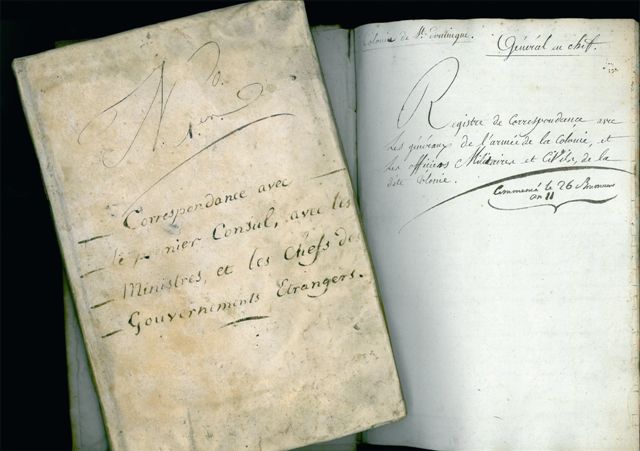 No.
1.er
Correspondance avec
le premier Consul, avec les
Ministres, et les Chefs des
Gouvernements Etrangers.
Colonie de St. Domingue.
Général en chef.
Registre de Correspondance avec
Les généraux de l'armée de la Colonie, et
Les officiers Militaires et Civils, de la
dite Colonie.
Commencé le 26 Brumaire
an 11